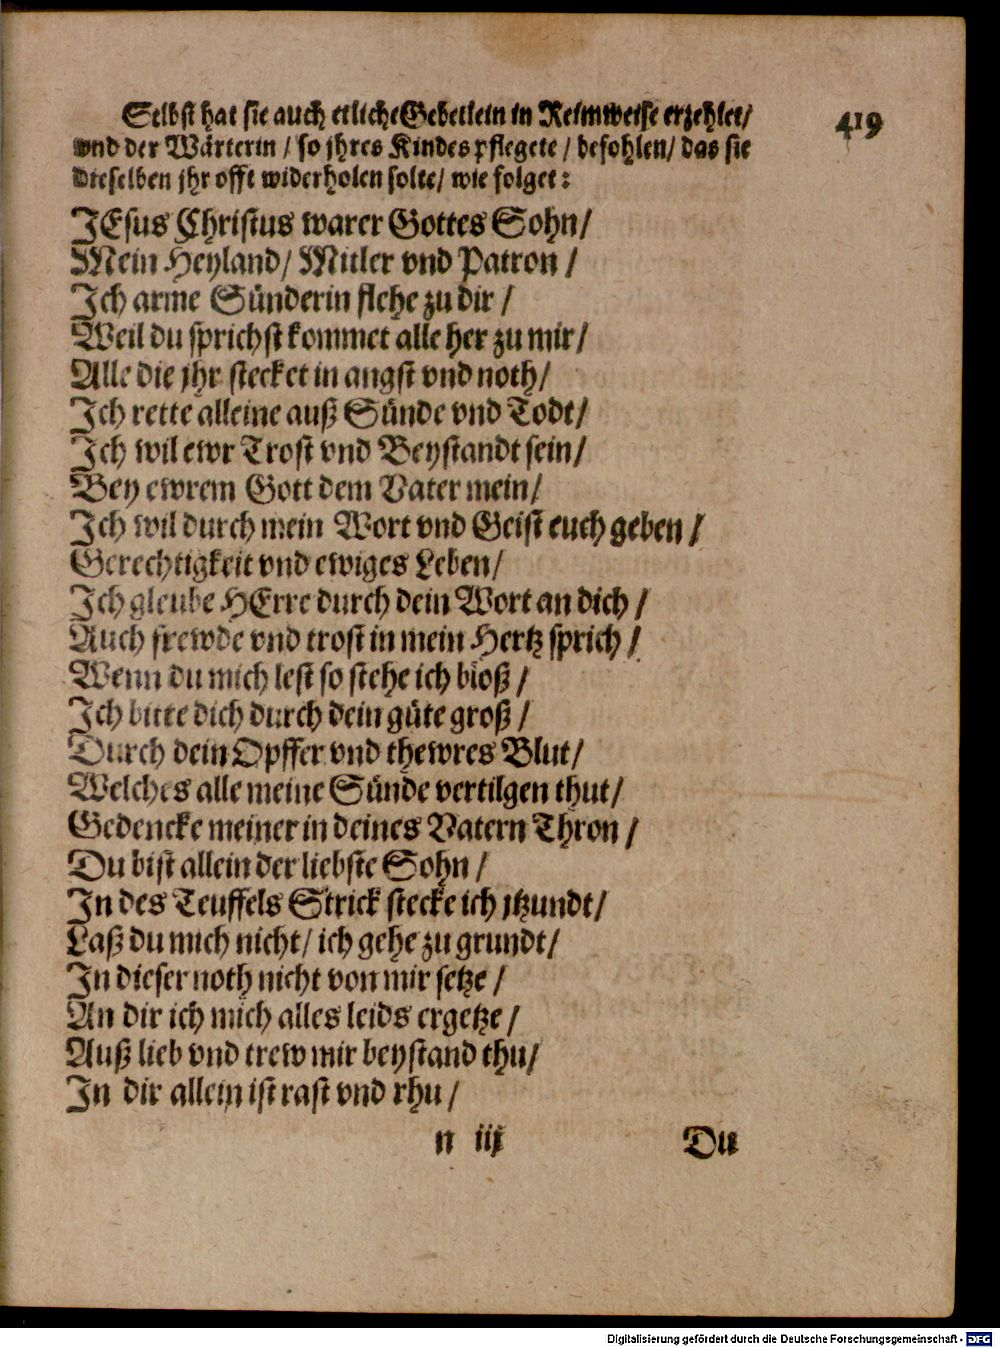 Selbst hat sie auch etliche Gebetlein in Reimweise erzehlet/
419
vnd der Wärterin / so jhres Kindes pflegete / befohlen/ das sie
dieselben jhr offt widerholen solte/ wie folget:
JEsus Christus warer Gottes Sohn/
Mein Heyland/ Mitler vnd Patron /
Ich arme Sünderin flehe zu dir /
Weil du sprichst kommet alle her zu mir/
Alle die jhr stecket in angst vnd noth/
Ich rette alleine auß Sünde vnd Todt/
Ich wil ewr Trost vnd Beystandt sein/
Bey ewrem Gott dem Vater mein/
Ich wil durch mein Wort vnd Geist euch geben /
Gerechtigkeit vnd ewiges Leben/
Ich gleube HErre durch dein Wort an dich /
Auch frewde vnd trost in mein Hertz sprich /
Wenn du mich lest so stehe ich bloß /
Ich bitte dich durch dein güte groß /
Durch dein Opffer vnd thewres Blut/
Welches alle meine Sünde vertilgen thut/
Gedencke meiner in deines Vatern Thron /
Du bist allein der liebste Sohn /
In des Teuffels Strick stecke ich jtzundt/
Laß du mich nicht/ ich gehe zu grundt/
In dieser noth nicht von mir setze /
An dir ich mich alles leids ergetze /
Auß lieb vnd trew mir beystand thu/
In dir allein ist rast vnd rhu /
n iij
Du
Digitalisierung gefördert durch die Deutsche Forschungsgemeinschaft - DFG